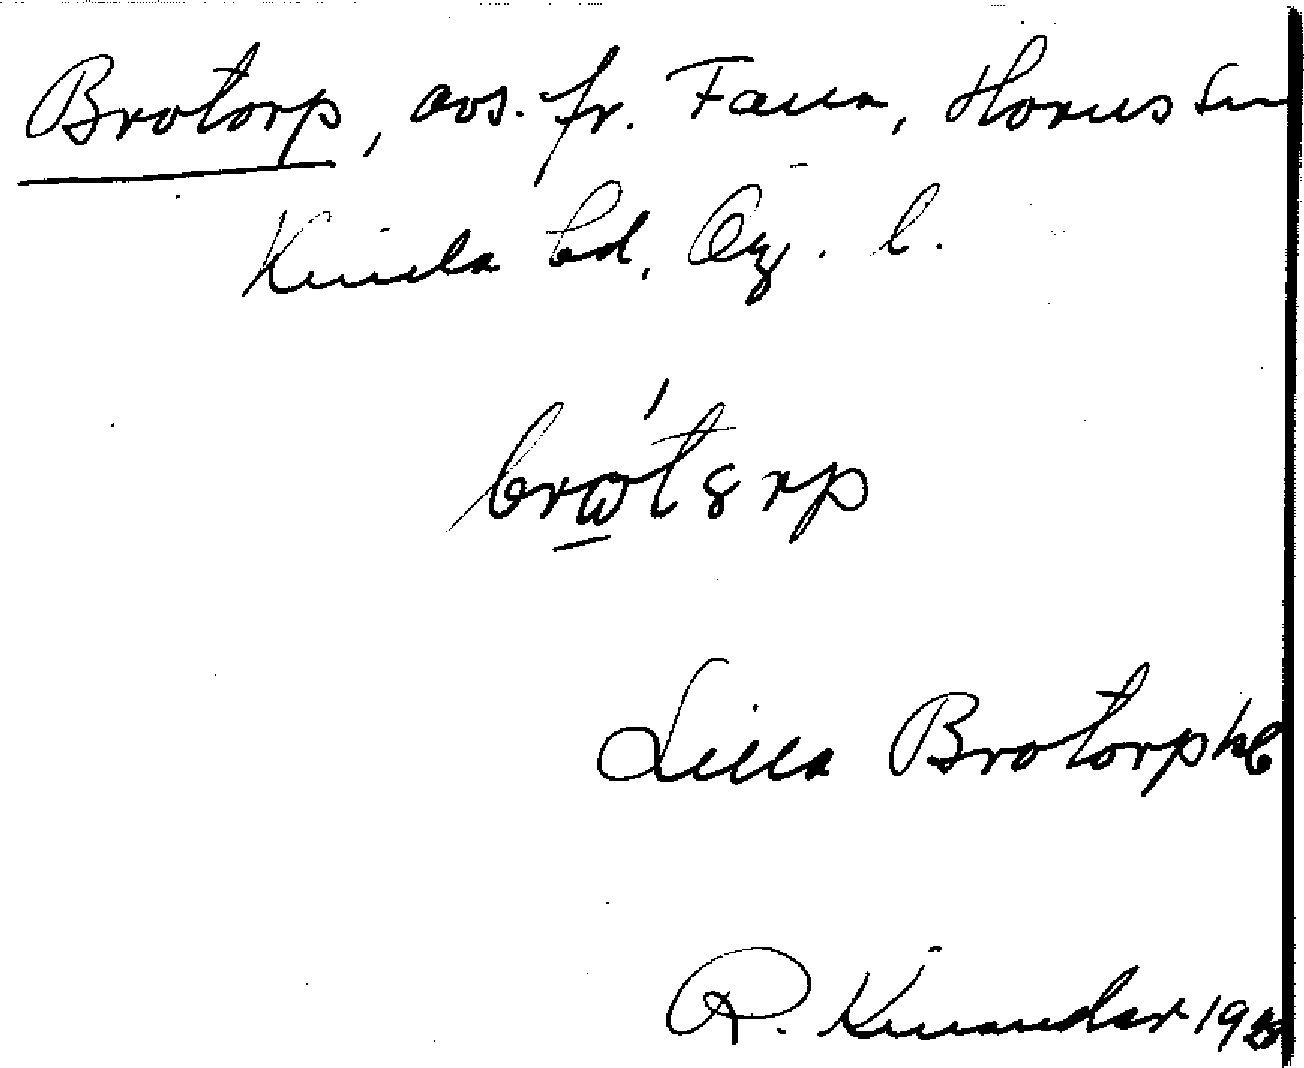 Brotorp, avs. fr. Falla, Horns sn
Kinda hd, Ög. l.
brωtɞrp
Lilla Brotorp
R. Kinander 19